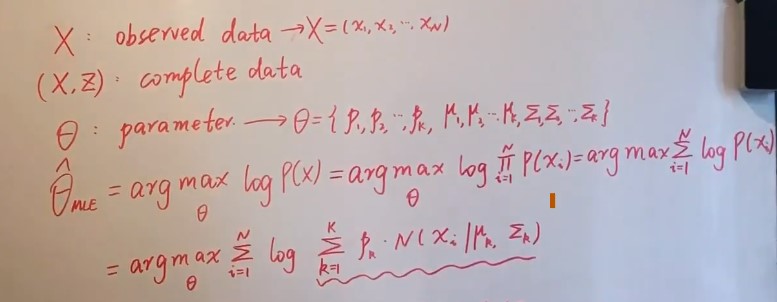 X : observed data → X = (x₁, x₂, ⋯ x_N)
(X, Z) : complete data
θ : parameter. → θ = { p₁, p₂, ⋯, p_k, μ₁, μ₂ ⋯ μ_k, Σ₁, Σ₂, ⋯, Σ_k }
θ̂_MLE = arg max_θ log P(x) = arg max_θ log ∏_{i=1}^{N} P(x_i) = arg max Σ_{i=1}^{N} log P(x_i)
= arg max_θ Σ_{i=1}^{N} log Σ_{k=1}^{K} p_k · N(x_i | μ_k, Σ_k)